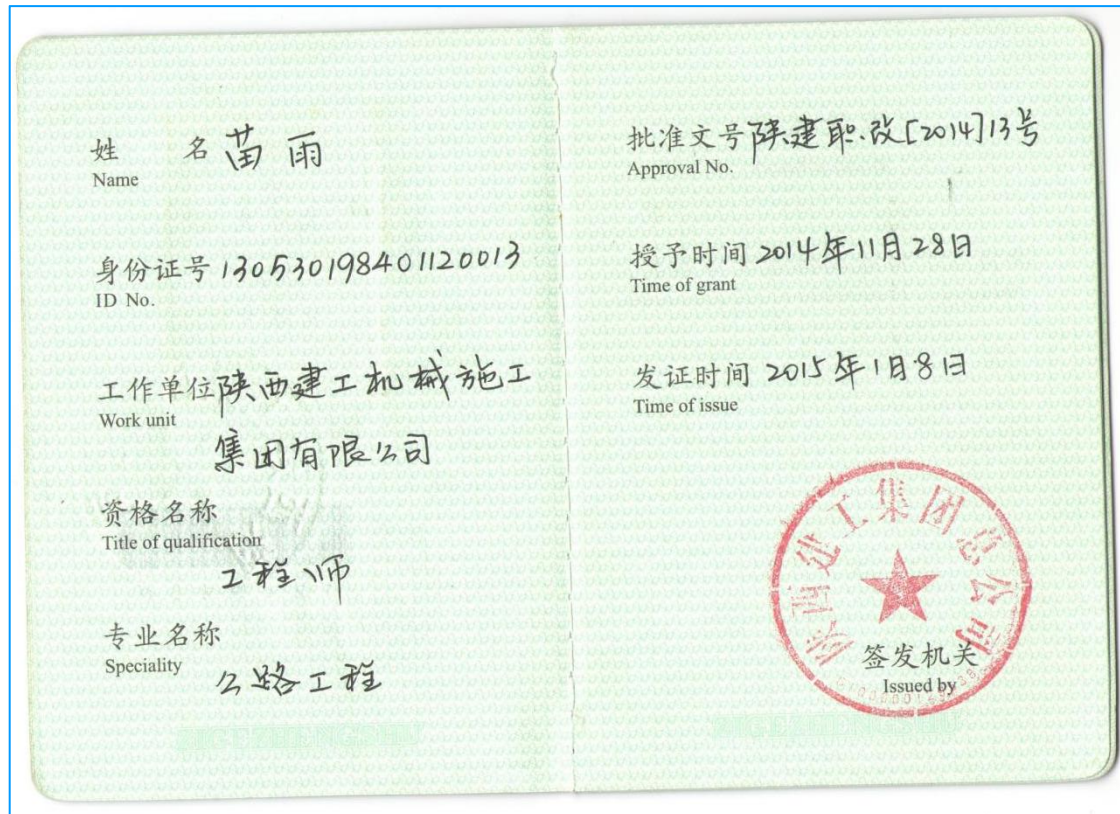 姓 名 苗雨
Name
身份证号 130530198401120013
ID No.
工作单位 陕西建工机械施工
Work unit
集团有限公司
资格名称
Title of qualification
工程师
专业名称
Speciality
公路工程
批准文号 陕建职改[2014]13号
Approval No.
授予时间 2014年11月28日
Time of grant
发证时间 2015年1月8日
Time of issue
陕西建工集团总公司
签发机关
Issued by